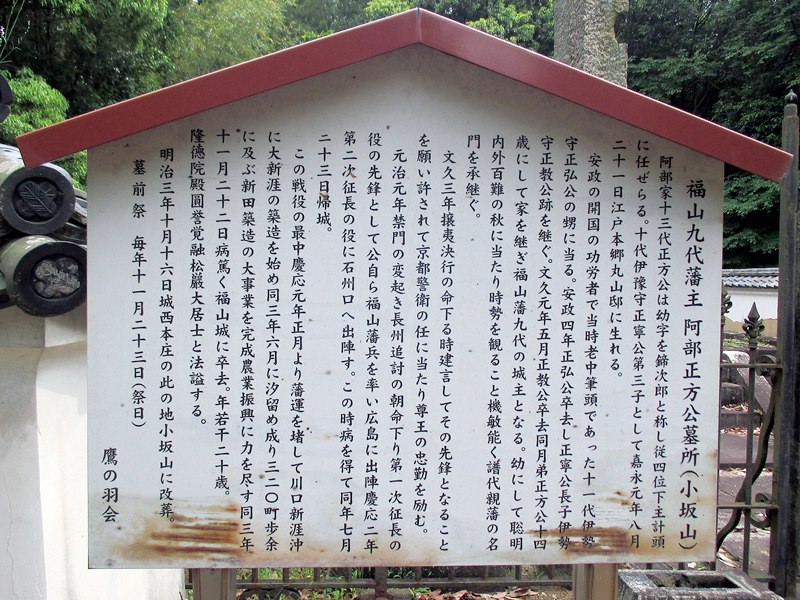 福山九代藩主 阿部正方公墓所(小坂山)
阿部家十三代正方公は幼字を籂次郎と称し従四位下主計頭
に任ぜらる。十代伊豫守正寧公第三子として嘉永元年八月
二十一日江戸本郷丸山邸に生れる。
安政の開国の功労者で当時老中筆頭であった十一代伊勢
守正弘公の甥に当る。安政四年正弘公卒去し正寧公長子伊勢
守正教公跡を継ぐ。文久元年五月正教公卒去同月弟正方公十四
歳にして家を継ぎ福山藩九代の城主となる。幼にして聡明
内外百難の秋に当たり時勢を観ること機敏能く譜代親藩の名
門を承継ぐ。
文久三年攘夷決行の命下る時建言してその先鋒となること
を願い許されて京都警衛の任に当たり尊王の忠勤を励む。
元治元年禁門の変起き長州追討の朝命下り第一次征長の
役の先鋒として公自ら福山藩兵を率い広島に出陣慶応二年
第二次征長の役に石州口へ出陣す。この時病を得て同年七月
二十三日帰城。
この戦役の最中慶応元年正月より藩運を堵して川口新涯沖
に大新涯の築造を始め同三年六月に汐留め成り三二〇町歩余
に及ぶ新田築造の大事業を完成農業振興に力を尽す同三年
十一月二十二日病篤く福山城に卒去。年若干二十歳。
隆徳院殿圓誉覚融松巌大居士と法謚する。
明治三年十月十六日城西本庄の此の地小坂山に改葬。
墓前祭 毎年十一月二十三日(祭日)
鷹の羽会